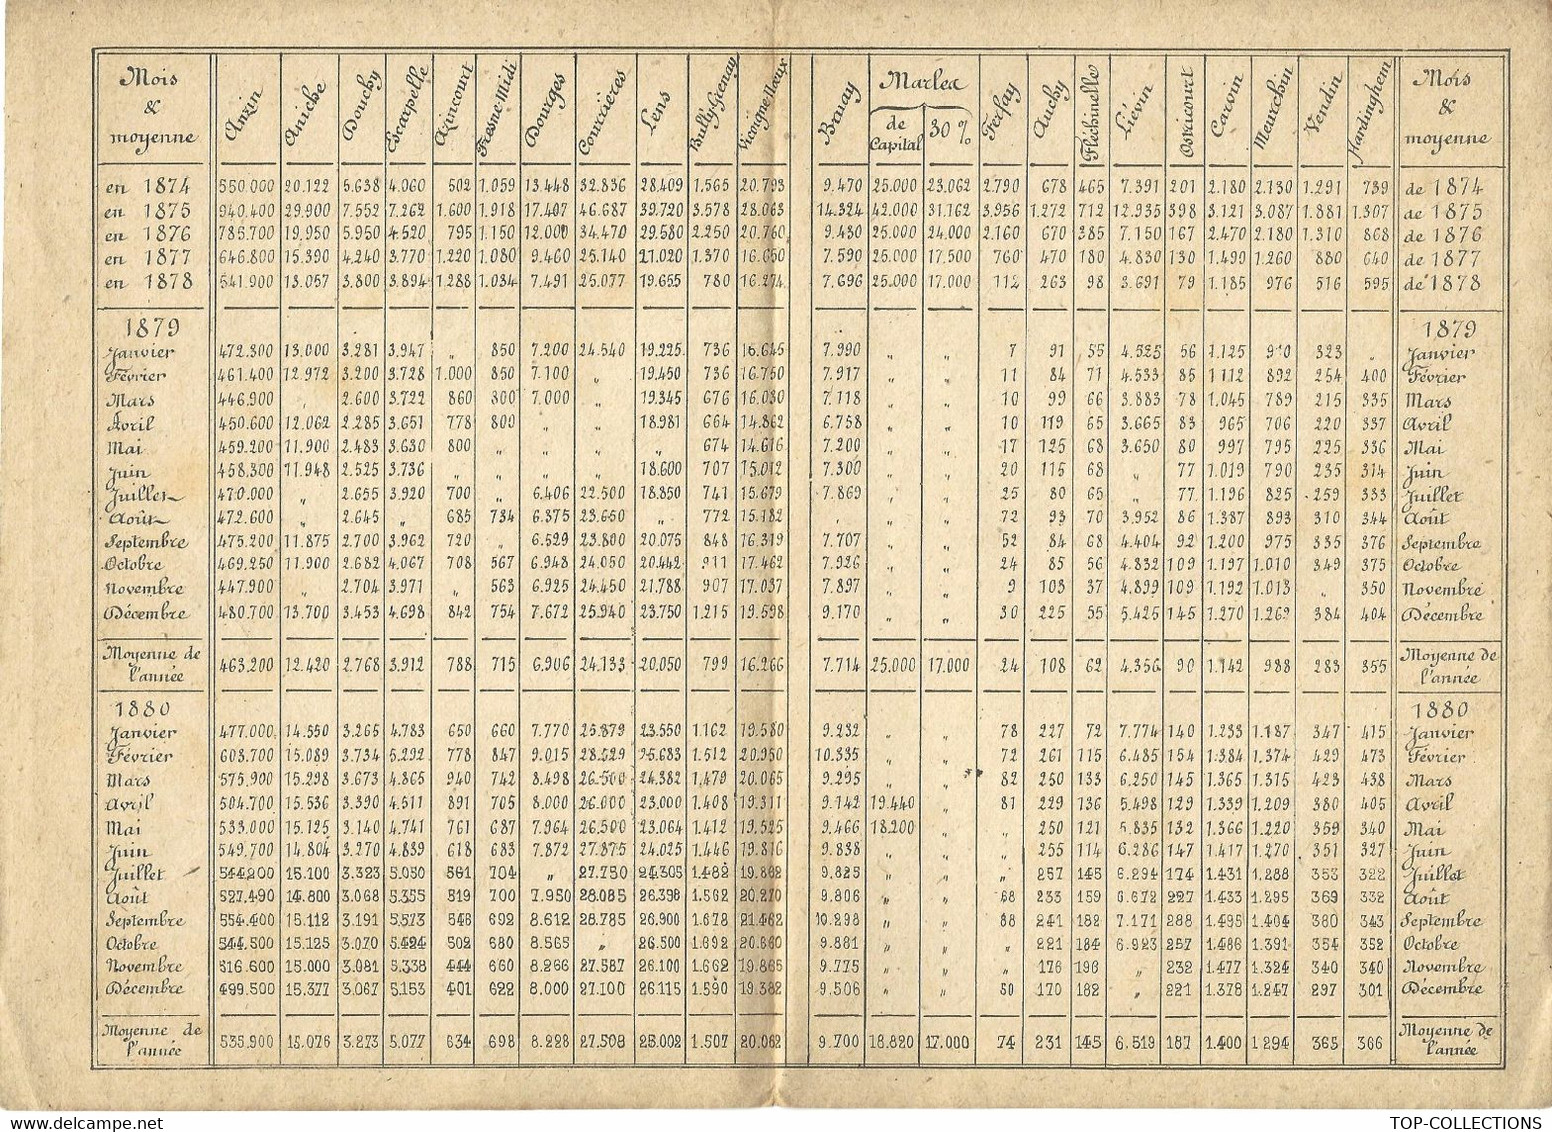 Mois & moyenne | Anzin | Aniche | Douchy | Escarpelle | Azincourt | Fresne-Midi | Dourges | Courrières | Lens | Bully-Grenay | Vicoigne-Nœux | Bruay | Marles de Capital | Marles 30 % | Ferfay | Auchy | Fléchinelle | Liévin | Ostricourt | Carvin | Meurchin | Vendin | Hardinghem | Mois & moyenne
en 1874 | 550.000 | 20.122 | 5.638 | 4.060 | 502 | 1.059 | 13.448 | 32.836 | 28.409 | 1.565 | 20.793 | 9.470 | 25.000 | 23.062 | 2.790 | 678 | 465 | 7.391 | 201 | 2.180 | 2.130 | 1.291 | 739 | de 1874
en 1875 | 940.400 | 29.900 | 7.552 | 7.262 | 1.600 | 1.918 | 17.407 | 46.687 | 39.720 | 3.578 | 28.063 | 14.324 | 42.000 | 31.162 | 3.956 | 1.272 | 712 | 12.935 | 398 | 3.121 | 3.087 | 1.881 | 1.307 | de 1875
en 1876 | 785.700 | 19.950 | 5.950 | 4.520 | 795 | 1.150 | 12.000 | 34.470 | 29.580 | 2.250 | 20.760 | 9.430 | 25.000 | 24.000 | 2.160 | 670 | 385 | 7.150 | 167 | 2.470 | 2.180 | 1.310 | 868 | de 1876
en 1877 | 646.800 | 15.390 | 4.240 | 3.770 | 1.220 | 1.080 | 9.460 | 25.140 | 21.020 | 1.370 | 16.650 | 7.590 | 25.000 | 17.500 | 760 | 470 | 180 | 4.830 | 130 | 1.499 | 1.260 | 880 | 640 | de 1877
en 1878 | 541.900 | 13.057 | 3.800 | 3.894 | 1.288 | 1.034 | 7.491 | 25.077 | 19.655 | 780 | 16.274 | 7.696 | 25.000 | 17.000 | 112 | 263 | 98 | 3.691 | 79 | 1.185 | 976 | 516 | 595 | de 1878
1879 | 1879
Janvier | 472.300 | 13.000 | 3.281 | 3.947 | „ | 850 | 7.200 | 24.540 | 19.225 | 736 | 16.645 | 7.990 | „ | „ | 7 | 91 | 55 | 4.525 | 56 | 1.125 | 910 | 323 | „ | Janvier
Février | 461.400 | 12.972 | 3.200 | 3.728 | 1.000 | 850 | 7.100 | „ | 19.450 | 736 | 16.750 | 7.917 | „ | „ | 11 | 84 | 71 | 4.533 | 85 | 1112 | 892 | 254 | 400 | Février
Mars | 446.900 | „ | 2.600 | 3.722 | 860 | 800 | 7.000 | „ | 19.345 | 676 | 16.030 | 7.118 | „ | „ | 10 | 99 | 66 | 3.883 | 78 | 1.045 | 789 | 215 | 335 | Mars
Avril | 450.600 | 12.062 | 2.285 | 3.651 | 778 | 800 | „ | „ | 18.981 | 664 | 14.862 | 6.758 | „ | „ | 10 | 119 | 65 | 3.665 | 83 | 965 | 706 | 220 | 337 | Avril
Mai | 459.200 | 11.900 | 2.483 | 3.630 | 800 | „ | „ | „ | „ | 674 | 14.616 | 7.200 | „ | „ | 17 | 125 | 68 | 3.650 | 80 | 997 | 795 | 225 | 336 | Mai
Juin | 458.300 | 11.948 | 2.525 | 3.736 | „ | „ | „ | „ | 18.600 | 707 | 15.012 | 7.300 | „ | „ | 20 | 115 | 68 | „ | 77 | 1.019 | 790 | 235 | 314 | Juin
Juillet | 470.000 | „ | 2.655 | 3.920 | 700 | „ | 6.406 | 22.500 | 18.850 | 741 | 15.679 | 7.869 | „ | „ | 25 | 80 | 65 | „ | 77 | 1.196 | 825 | 259 | 333 | Juillet
Août | 472.600 | „ | 2.645 | „ | 685 | 734 | 6.375 | 23.650 | „ | 772 | 15.182 | „ | „ | „ | 72 | 93 | 70 | 3.952 | 86 | 1.387 | 893 | 310 | 344 | Août
Septembre | 475.200 | 11.875 | 2.700 | 3.962 | 720 | „ | 6.529 | 23.800 | 20.075 | 848 | 16.319 | 7.707 | „ | „ | 52 | 84 | 68 | 4.404 | 92 | 1.200 | 975 | 335 | 376 | Septembre
Octobre | 469.250 | 11.900 | 2.682 | 4.067 | 708 | 567 | 6.948 | 24.050 | 20.442 | 911 | 17.462 | 7.926 | „ | „ | 24 | 85 | 56 | 4.832 | 109 | 1.197 | 1.010 | 349 | 375 | Octobre
Novembre | 447.900 | „ | 2.704 | 3.971 | „ | 563 | 6.925 | 24.450 | 21.788 | 907 | 17.037 | 7.897 | „ | „ | 9 | 103 | 37 | 4.899 | 109 | 1.192 | 1.013 | „ | 350 | Novembre
Décembre | 480.700 | 13.700 | 3.453 | 4.698 | 842 | 754 | 7.672 | 25.940 | 23.750 | 1.215 | 19.598 | 9.170 | „ | „ | 30 | 225 | 55 | 5.425 | 145 | 1.270 | 1.269 | 384 | 404 | Décembre
Moyenne de l'année | 463.200 | 12.420 | 2.768 | 3.912 | 788 | 715 | 6.906 | 24.133 | 20.050 | 799 | 16.266 | 7.714 | 25.000 | 17.000 | 24 | 108 | 62 | 4.356 | 90 | 1.142 | 988 | 283 | 355 | Moyenne de l'année
1880 | 1880
Janvier | 477.000 | 14.550 | 3.265 | 4.783 | 650 | 660 | 7.770 | 25.879 | 23.550 | 1.162 | 19.580 | 9.232 | „ | „ | 78 | 227 | 72 | 7.774 | 140 | 1.233 | 1.187 | 347 | 415 | Janvier
Février | 603.700 | 15.089 | 3.734 | 5.292 | 778 | 847 | 9.015 | 28.529 | 25.683 | 1.512 | 20.950 | 10.335 | „ | „ | 72 | 261 | 115 | 6.485 | 154 | 1.384 | 1.374 | 429 | 473 | Février
Mars | 575.900 | 15.298 | 3.673 | 4.865 | 940 | 742 | 8.498 | 26.500 | 24.382 | 1.479 | 20.065 | 9.295 | „ | „ | 82 | 250 | 133 | 6.250 | 145 | 1.365 | 1.315 | 423 | 438 | Mars
Avril | 504.700 | 15.536 | 3.390 | 4.511 | 891 | 705 | 8.000 | 26.000 | 23.000 | 1.408 | 19.311 | 9.142 | 19.440 | „ | 81 | 229 | 136 | 5.498 | 129 | 1.339 | 1.209 | 380 | 405 | Avril
Mai | 533.000 | 15.125 | 3.140 | 4.741 | 761 | 687 | 7.964 | 26.500 | 23.064 | 1.412 | 19.525 | 9.466 | 18.200 | „ | „ | 250 | 121 | 5.835 | 132 | 1.366 | 1.220 | 359 | 340 | Mai
Juin | 549.700 | 14.804 | 3.270 | 4.839 | 618 | 683 | 7.872 | 27.875 | 24.025 | 1.446 | 19.816 | 9.838 | „ | „ | „ | 255 | 114 | 6.286 | 147 | 1.417 | 1.270 | 351 | 327 | Juin
Juillet | 544.200 | 15.100 | 3.323 | 5.050 | 561 | 704 | „ | 27.750 | 24.305 | 1.482 | 19.862 | 9.825 | „ | „ | „ | 257 | 145 | 6.294 | 174 | 1.431 | 1.288 | 353 | 322 | Juillet
Août | 527.490 | 14.800 | 3.068 | 5.355 | 519 | 700 | 7.950 | 28.085 | 26.398 | 1.562 | 20.270 | 9.806 | „ | „ | 68 | 233 | 159 | 6.672 | 227 | 1.433 | 1.295 | 369 | 332 | Août
Septembre | 554.400 | 15.112 | 3.191 | 5.573 | 546 | 692 | 8.612 | 28.785 | 26.900 | 1.678 | 21.462 | 10.298 | „ | „ | 88 | 241 | 182 | 7.171 | 288 | 1.495 | 1.404 | 380 | 343 | Septembre
Octobre | 544.500 | 15.125 | 3.070 | 5.424 | 502 | 680 | 8.565 | „ | 26.500 | 1.692 | 20.660 | 9.881 | „ | „ | „ | 221 | 184 | 6.923 | 257 | 1.486 | 1.391 | 354 | 352 | Octobre
Novembre | 516.600 | 15.000 | 3.081 | 5.338 | 444 | 660 | 8.266 | 27.587 | 26.100 | 1.662 | 19.865 | 9.775 | „ | „ | „ | 176 | 196 | „ | 232 | 1.477 | 1.324 | 340 | 340 | Novembre
Décembre | 499.500 | 15.377 | 3.067 | 5.153 | 401 | 622 | 8.000 | 27.100 | 26.115 | 1.590 | 19.382 | 9.506 | „ | „ | 50 | 170 | 182 | „ | 221 | 1.378 | 1.247 | 297 | 301 | Décembre
Moyenne de l'année | 535.900 | 15.076 | 3.273 | 5.077 | 634 | 698 | 8.228 | 27.508 | 25.002 | 1.507 | 20.062 | 9.700 | 18.820 | 17.000 | 74 | 231 | 145 | 6.519 | 187 | 1.400 | 1.294 | 365 | 366 | Moyenne de l'année
TOP-COLLECTIONS